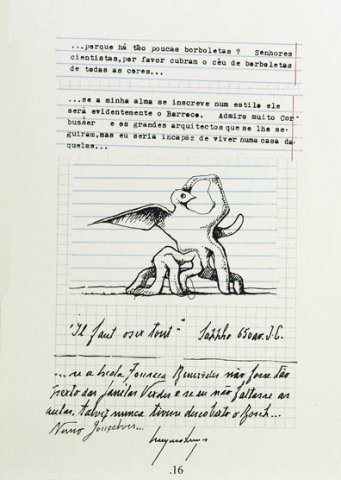 ...porque há tão poucas borboletas ? Senhores
cientistas,por favor cubram o céu de borboletas
de todas as cores...
...se a minha alma se inscreve num estilo ele
será evidentemente o Barroco. Admiro muito Cor
busier e os grandes arquitectos que se lhe se-
guiram,mas eu seria incapaz de viver numa casa da
quelas...
"Il faut oser tout" Sappho 650 av. J.C.
... se a Escola Fonseca Benevides não fosse tão
perto das Janelas Verdes e se eu não faltasse às
aulas, talvez nunca tivesse descoberto o Bosch...
Nuno Gonçalves...
.16